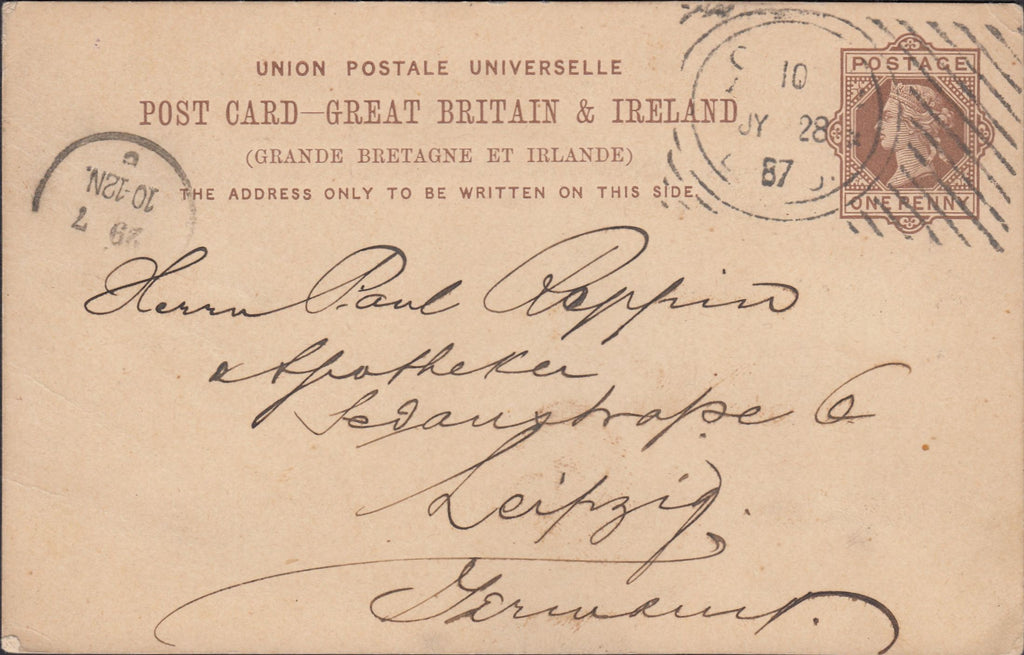 UNION POSTALE UNIVERSELLE
POST CARD—GREAT BRITAIN & IRELAND
(GRANDE BRETAGNE ET IRLANDE)
THE ADDRESS ONLY TO BE WRITTEN ON THIS SIDE.
POSTAGE
ONE PENNY
10
JY 28
87
29 7
10-12N.
Herrn Paul Reppin
Apotheker
Sedanstraße 6
Leipzig.
Germany.